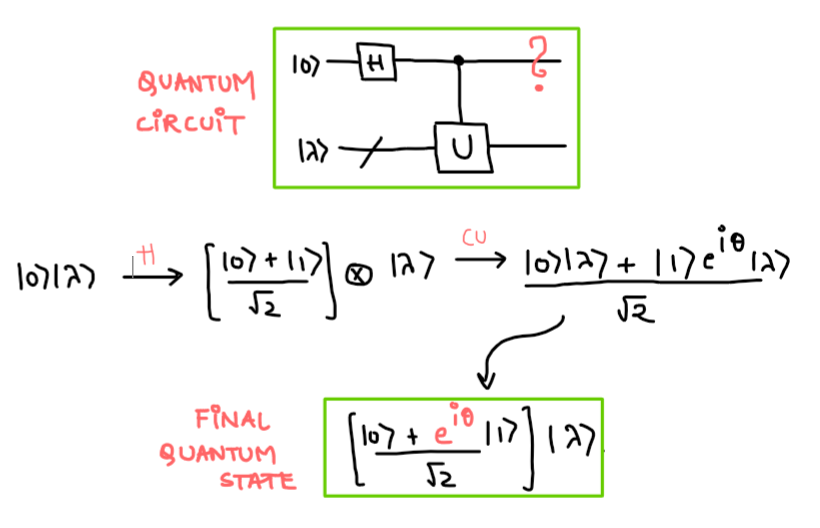 |0⟩ H ?
QUANTUM
CIRCUIT
|λ⟩ U
|0⟩|λ⟩ H→ [|0⟩ + |1⟩ / √2] ⊗ |λ⟩ CU→ |0⟩|λ⟩ + |1⟩e^{iθ}|λ⟩ / √2
FINAL
QUANTUM
STATE
[|0⟩ + e^{iθ}|1⟩ / √2] |λ⟩